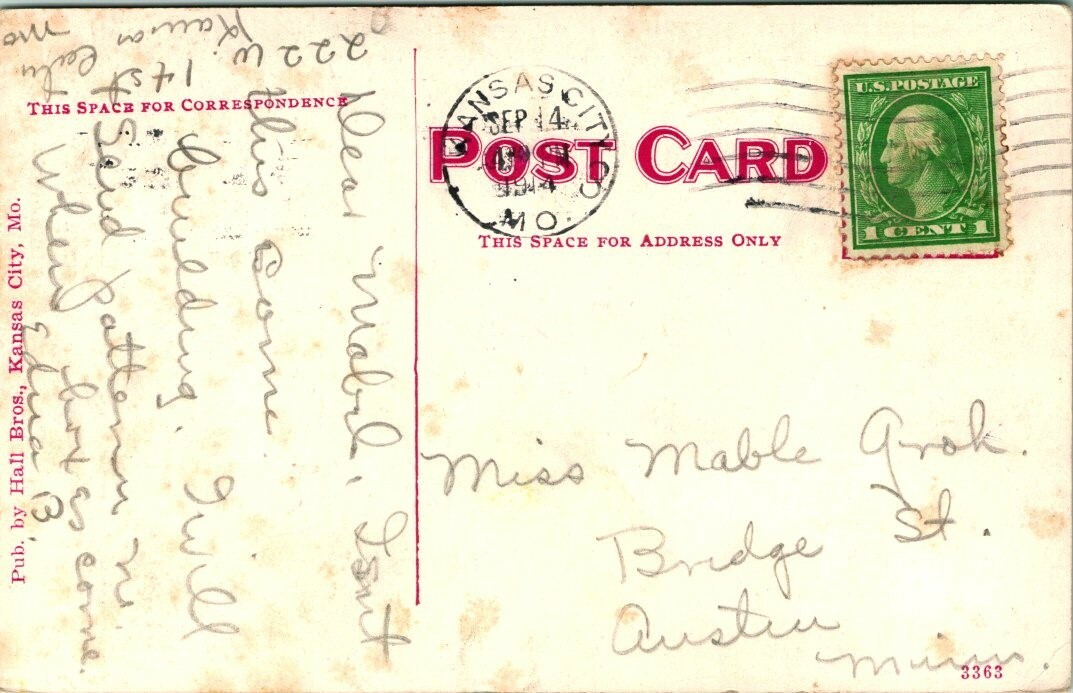 222 W
1st St
Kansas City
Mo
Dear Mabel, Isnt
this Some
building. I will
Send pattern in
when box is come.
Edna B
THIS SPACE FOR CORRESPONDENCE
Pub. by Hall Bros., Kansas City, Mo.
POST CARD
THIS SPACE FOR ADDRESS ONLY
KANSAS CITY
SEP 14
1914
MO.
U.S. POSTAGE
1 CENT 1
Miss Mable Grok.
Bridge St.
Austin
Minn.
3363